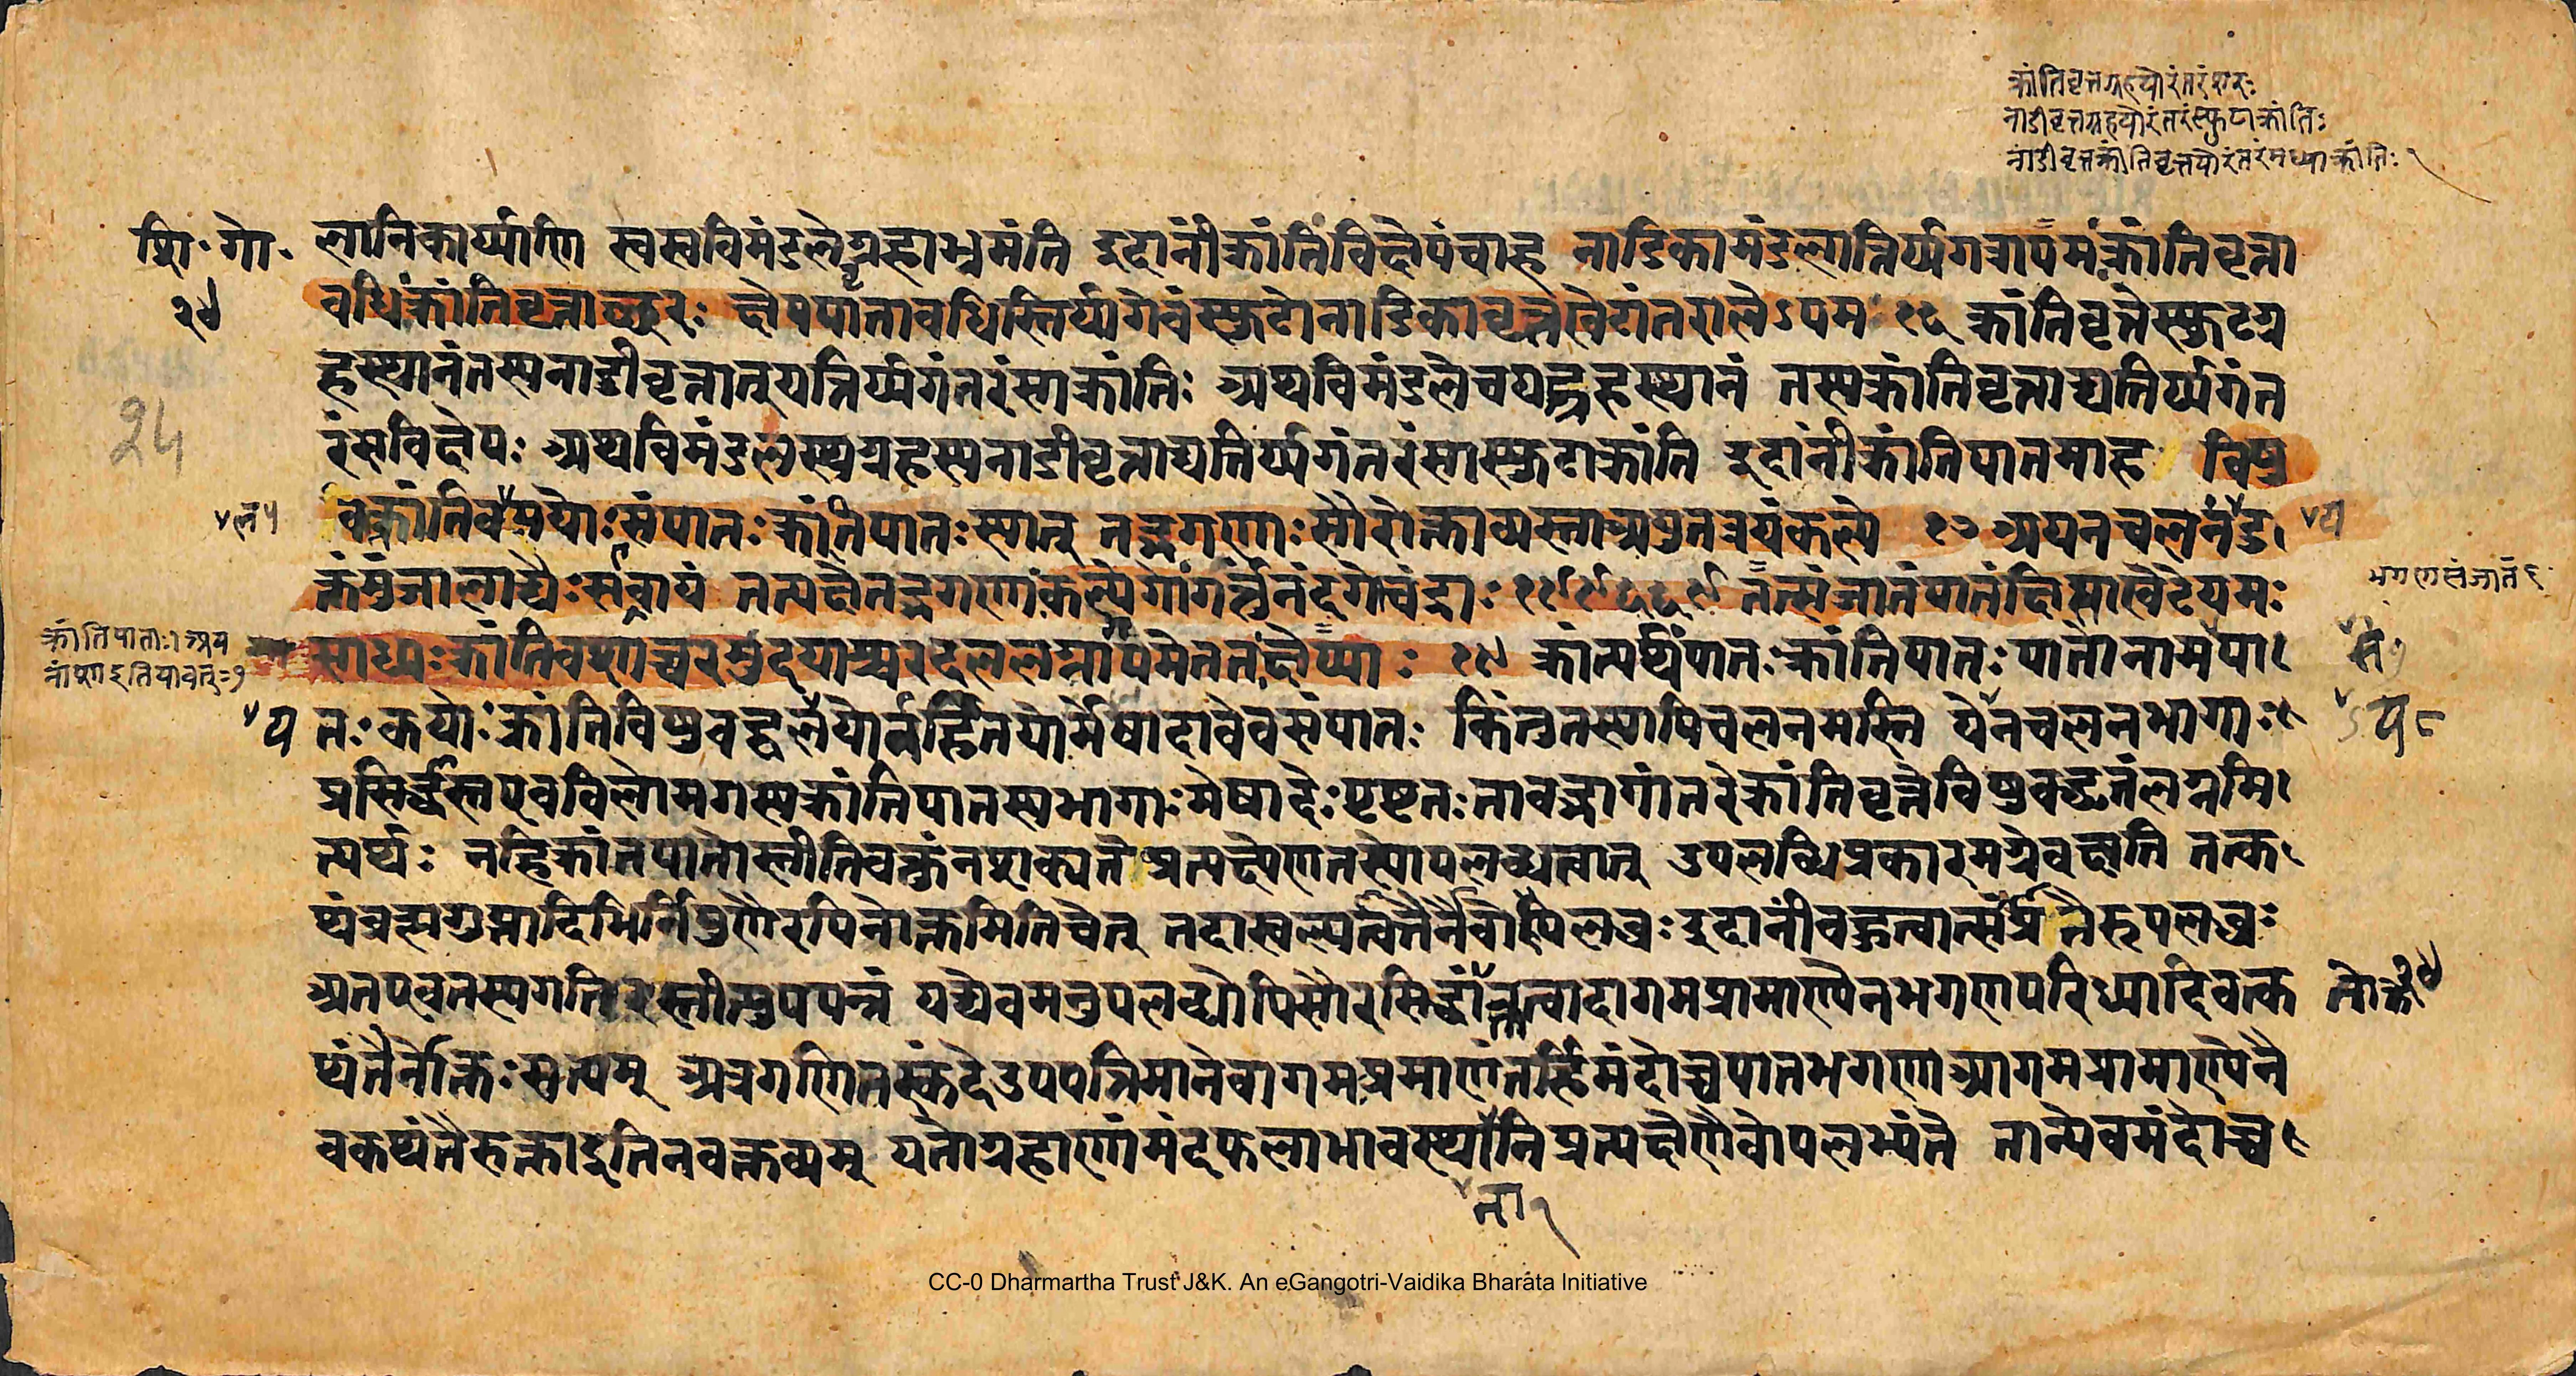 क्रांतिवृत्तग्रहयोरंतरंशरः
नाडीवृत्तग्रहयोरंतरंस्फुटाक्रांतिः
नाडीवृत्तक्रांतिवृत्तयोरंतरंमध्याक्रांतिः १
शि॰ गो॰ लानिकार्य्याणि स्वस्वविमंडलेग्रहाभ्रमंति इदानींक्रांतिंविक्षेपंचाह नाडिकामंडलात्तिर्य्यगत्रापमःक्रांतिवृत्ता
२५ वधिःक्रांतिवृत्ताच्छरः क्षेपपातावधिस्तिर्य्यगेवंस्फुटोनाडिकावृत्तखेटांतरालेऽपम १६ क्रांतिवृत्तेस्फुटग्र
हस्थानंतस्यनाडीवृत्तात्तुयत्तिर्य्यगंतरंसाक्रांतिः अथविमंडलेचयद्ग्रहस्थानं तस्यक्रांतिवृत्ताद्यत्तिर्य्यगंत
25
रंसविक्षेपः अथविमंडलस्थग्रहस्यनाडीवृत्ताद्यत्तिर्य्यगंतरंसास्फुटाक्रांति इदानींक्रांतिपातमाह विषु
ल५ वक्रांतिवसयोःसंपातःक्रांतिपातःस्यात् तद्भगणाःसौरोक्ताव्यस्ताअयुतत्रयंकल्पे १७ अयनचलनंदु य
क्तंमुंजालाद्यैःसएवायं तत्पक्षेतद्भगणाःकल्पेगोंगर्त्तुनंदगोचंद्राः १९९६६९ तत्संजातंपातंक्षिप्त्वाखेटेपमः
भगणसंजातं ६
क्रांतिपाताः अय
नांशाइतियावत् ७
साध्यःक्रांतिवशाच्चरमुदयाश्चरदललग्नागमेततःक्षेप्यः १८ क्रांत्यर्थंपातःक्रांतिपातःपातोनामपा सं
य तःकयोःक्रांतिविषुवद्वलयोर्नर्हितयोर्मेषादावेवसंपातः किंतुतस्यापिचलनमस्ति येनचलनभागाः ऽय ८
प्रसिद्धास्तएवविलोमगस्यक्रांतिपातस्यभागाःमेषादेःपृष्टतःतावद्भागांतरेक्रांतिवृत्तेविषुवद्वृत्तंलग्नमि
त्यर्थः नहिक्रांतपातोस्तीतिवक्तुंनशक्यते प्रत्यक्षेणतस्योपलब्धत्वात् उपलब्धिप्रकारमग्रेवक्ष्यति तत्क
थंब्रह्मगुप्तादिभिर्निपुणैरपिनोक्तमितिचेत् तदास्वल्पत्वात्तैर्नैवोपलब्धः इदानींबहुत्वात्सांप्रतैरुपलब्धः
अतएवतस्यगतिरस्तीत्युपपन्नं यद्येवमनुपलब्धोपिसौरसिद्धांतोक्तत्वादागमप्रामाण्येनभगणपरिध्यादिवत्क तोक्त
थंतैर्नोक्तःसत्यम् अत्रगणितस्कंदेउपपत्तिमानेवागमःप्रमाणंतर्हिमंदोच्चपातभगणाआगमप्रामाण्येनै
वकथंतैरुक्ताइतिनवक्तव्यम् यतोग्रहाणांमंदफलाभावस्थानिप्रत्यक्षेणैवोपलभ्यंते तान्येवमंदोच्च
ना १
CC-0 Dharmartha Trust J&K. An eGangotri-Vaidika Bharata Initiative